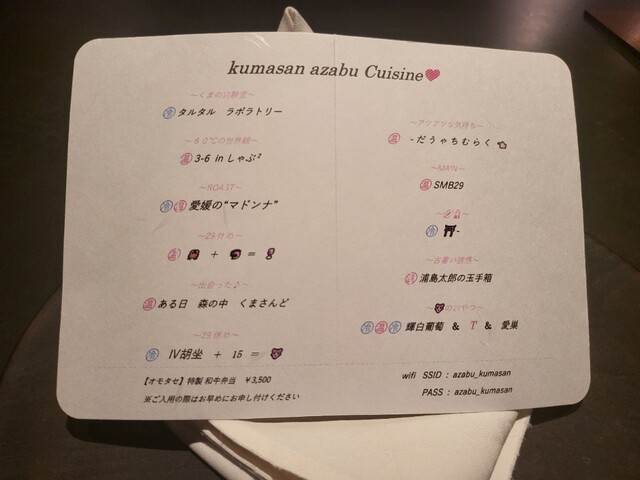 kumasan azabu Cuisine
～くまの実験室～
冷 タルタル ラボラトリー
～60℃の世界観～
温 3-6 in しゃぶ²
～ROAST～
冷 温 愛媛の“マドンナ”
～29
+ =
～出会った♪～
温 ある日 森の中 くまさんど
～29休め～
冷 Ⅳ胡坐 + 15 =
【オモタセ】特製 和牛弁当 ￥3,500
※ご入用の際はお早めにお申し付けください
～アツアツな気持ち～
温 -だうゃちむらく
～MAIN～
温 SMB29
冷 -
浦島太郎の玉手箱
のおやつ～
冷 温 冷 輝白葡萄 & T & 愛巣
wifi SSID : azabu_kumasan
PASS : azabu_kumasan